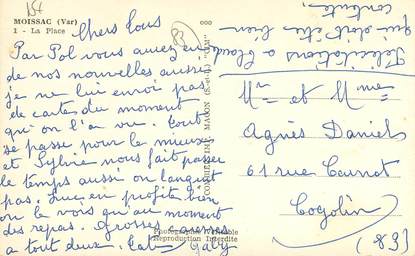 MOISSAC (Var)
1 - La Place
Chers Tous
Par Pol vous auriez eu
de nos nouvelles aussi
je ne lui envoi pas
de cartes du moment
qu'on l'a vu. Tout
se passe pour le mieux
et Sylvie nous fait passer
le temps aussi on languit
pas. Luc en profite bien
on le vois qu'au moment
des repas. Grosses caresses
a tout deux. Gaby
Photographie Véritable
Reproduction Interdite
COMBIER IMP. MACON (S.-et-L.) "CIM"
Félicitations a Claude
qui doit être bien
contente.
83
Mr et Mme
Agnès Daniel
61 rue Carnot
Cogolin
(83)